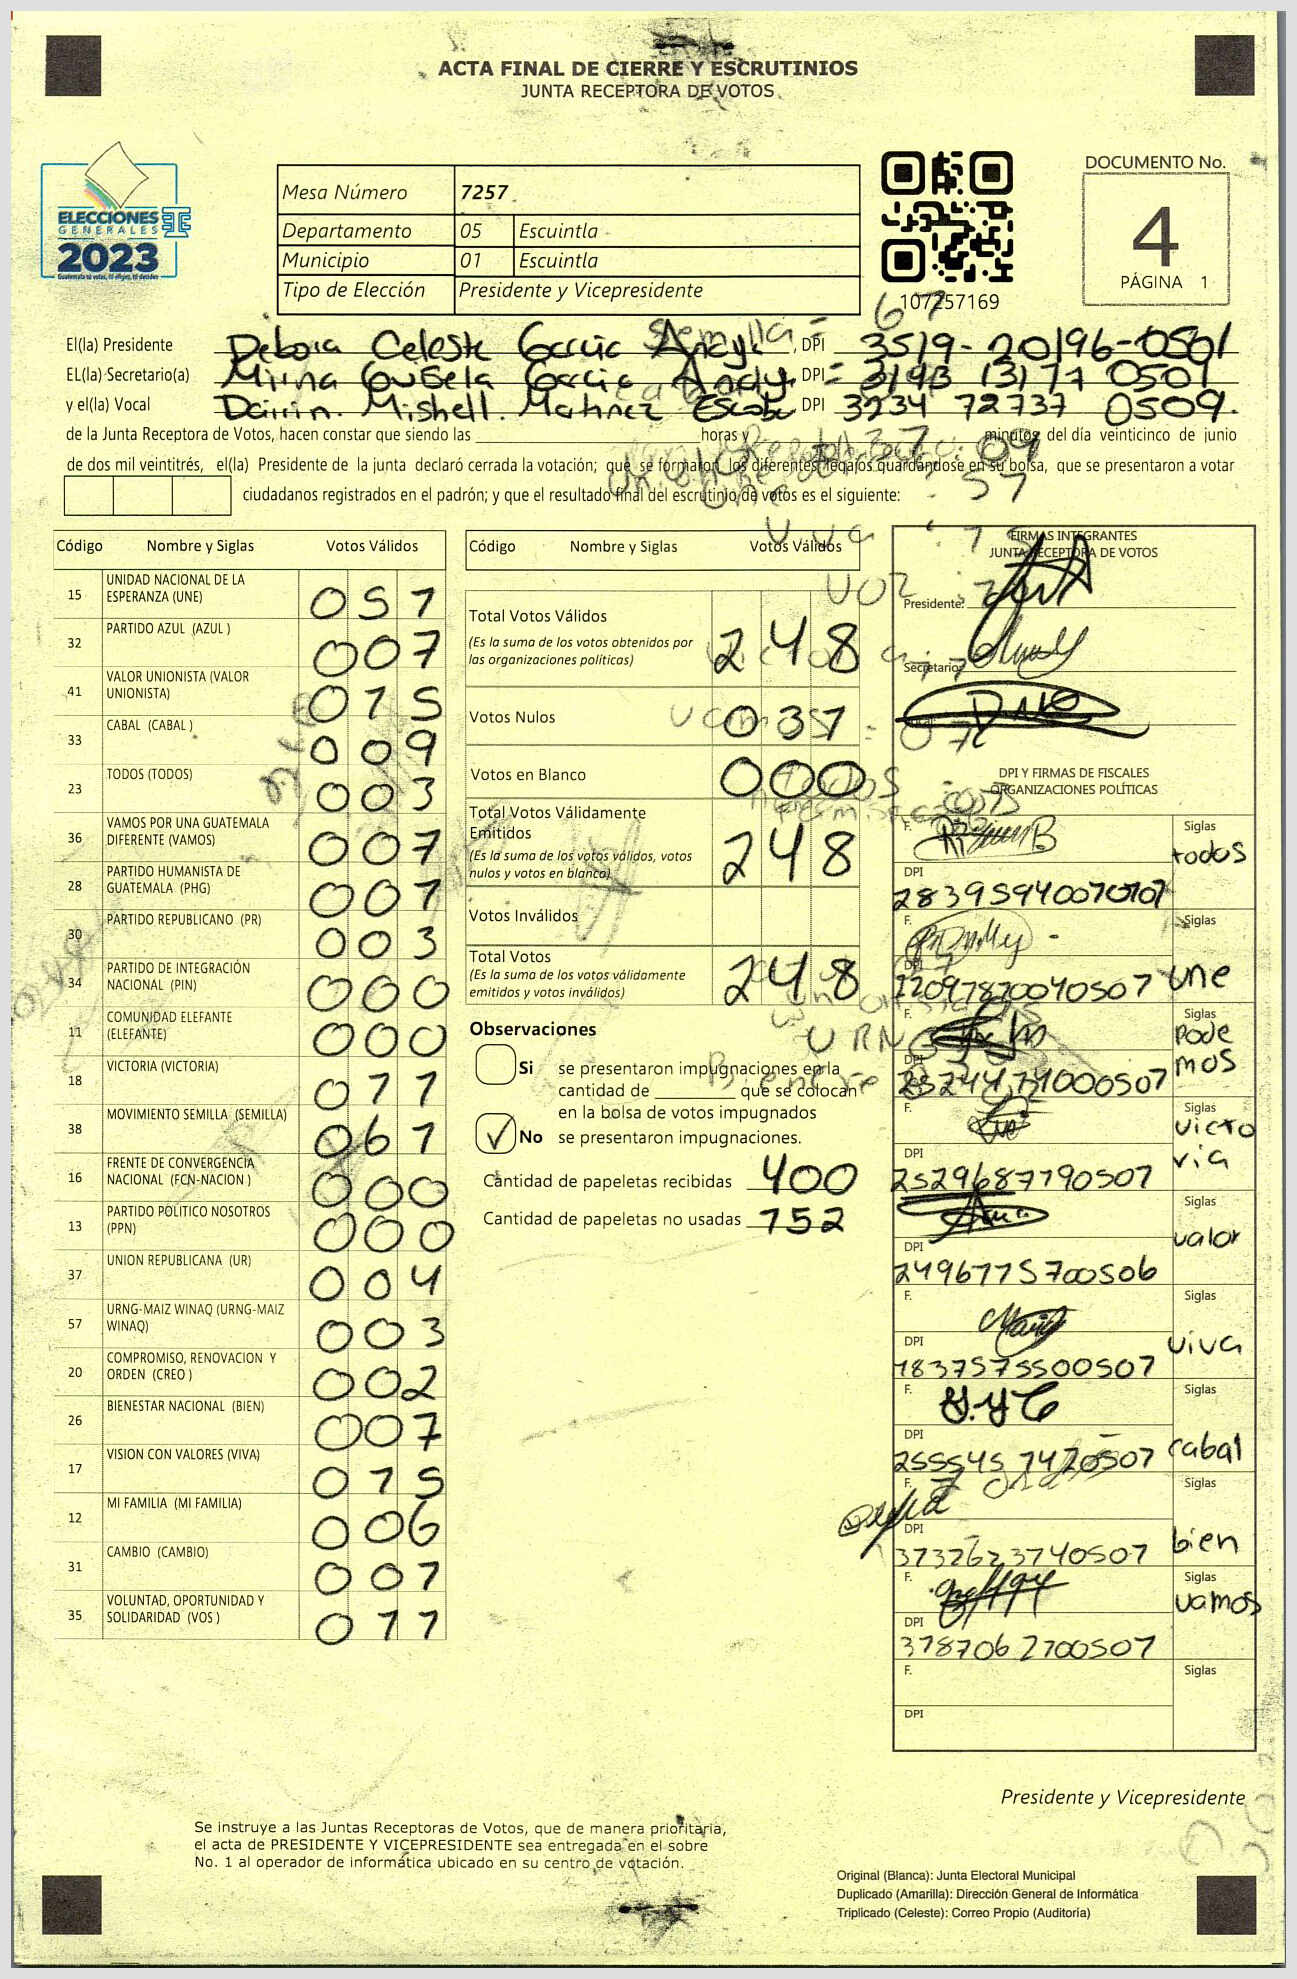 ACTA FINAL DE CIERRE Y ESCRUTINIOS
JUNTA RECEPTORA DE VOTOS
ELECCIONES
GENERALES
2023
Mesa Número 7257
Departamento 05 Escuintla
Municipio 01 Escuintla
Tipo de Elección Presidente y Vicepresidente
107257169
DOCUMENTO No.
4
PÁGINA 1
El(la) Presidente Debora Celeste Garcia , DPI 3519-20196-0501
EL(la) Secretario(a) Mirna Garcia , DPI 3193 13177 0509
y el(la) Vocal Mishell. Martinez DPI 3234 72737 0509.
de la Junta Receptora de Votos, hacen constar que siendo las horas y minutos del día veinticinco de junio
de dos mil veintitrés, el(la) Presidente de la junta declaró cerrada la votación; que se formaron los diferentes legajos quardándose en su bolsa, que se presentaron a votar
ciudadanos registrados en el padrón; y que el resultado final del escrutinio de votos es el siguiente:
Código Nombre y Siglas Votos Válidos
15 UNIDAD NACIONAL DE LA ESPERANZA (UNE) 057
32 PARTIDO AZUL (AZUL ) 007
41 VALOR UNIONISTA (VALOR UNIONISTA) 015
33 CABAL (CABAL ) 009
23 TODOS (TODOS) 003
36 VAMOS POR UNA GUATEMALA DIFERENTE (VAMOS) 007
28 PARTIDO HUMANISTA DE GUATEMALA (PHG) 001
30 PARTIDO REPUBLICANO (PR) 003
34 PARTIDO DE INTEGRACIÓN NACIONAL (PIN) 000
11 COMUNIDAD ELEFANTE (ELEFANTE) 000
18 VICTORIA (VICTORIA) 011
38 MOVIMIENTO SEMILLA (SEMILLA) 061
16 FRENTE DE CONVERGENCIA NACIONAL (FCN-NACION ) 000
13 PARTIDO POLITICO NOSOTROS (PPN) 000
37 UNION REPUBLICANA (UR) 004
57 URNG-MAIZ WINAQ (URNG-MAIZ WINAQ) 003
20 COMPROMISO, RENOVACION Y ORDEN (CREO ) 002
26 BIENESTAR NACIONAL (BIEN) 007
17 VISION CON VALORES (VIVA) 015
12 MI FAMILIA (MI FAMILIA) 006
31 CAMBIO (CAMBIO) 001
35 VOLUNTAD, OPORTUNIDAD Y SOLIDARIDAD (VOS ) 011
Código Nombre y Siglas Votos Válidos
Total Votos Válidos 248
(Es la suma de los votos obtenidos por
las organizaciones políticas)
Votos Nulos 037
Votos en Blanco 000
Total Votos Válidamente
Emitidos 248
(Es la suma de los votos válidos, votos
nulos y votos en blanco)
Votos Inválidos
Total Votos 248
(Es la suma de los votos válidamente
emitidos y votos inválidos)
Observaciones
Si se presentaron impugnaciones en la
cantidad de que se colocan
en la bolsa de votos impugnados
No se presentaron impugnaciones.
Cantidad de papeletas recibidas 400
Cantidad de papeletas no usadas 152
FIRMAS INTEGRANTES
JUNTA RECEPTORA DE VOTOS
Presidente:
Secretario:
DPI Y FIRMAS DE FISCALES
ORGANIZACIONES POLÍTICAS
F. Siglas
todos
DPI
F. Siglas
DPI
une
F. Siglas
Podemos
DPI
F. Siglas
victoria
DPI
2529687790507
F.
Siglas
valor
DPI
2496775700506
F. Siglas
viva
DPI
1837575500507
F. Siglas
DPI
cabal
F. Siglas
DPI
bien
3732623740507
F. Siglas
vamos
DPI
3787062700507
F. Siglas
DPI
Presidente y Vicepresidente
Se instruye a las Juntas Receptoras de Votos, que de manera prioritaria,
el acta de PRESIDENTE Y VICEPRESIDENTE sea entregada en el sobre
No. 1 al operador de informática ubicado en su centro de votación.
Original (Blanca): Junta Electoral Municipal
Duplicado (Amarilla): Dirección General de Informática
Triplicado (Celeste): Correo Propio (Auditoría)